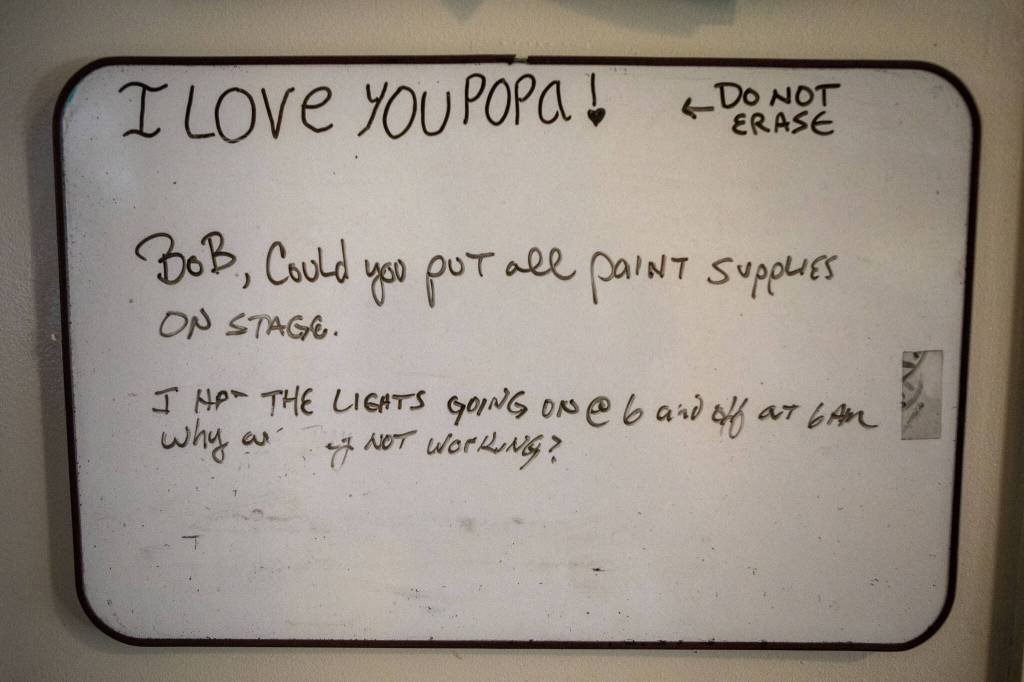 I LOVE YOU POPA!
← DO NOT
ERASE
BOB, Could you put all paint supplies
ON STAGE.
I THE LIGHTS GOING ON @ 6 and off at 6 AM
Why NOT WORKING?